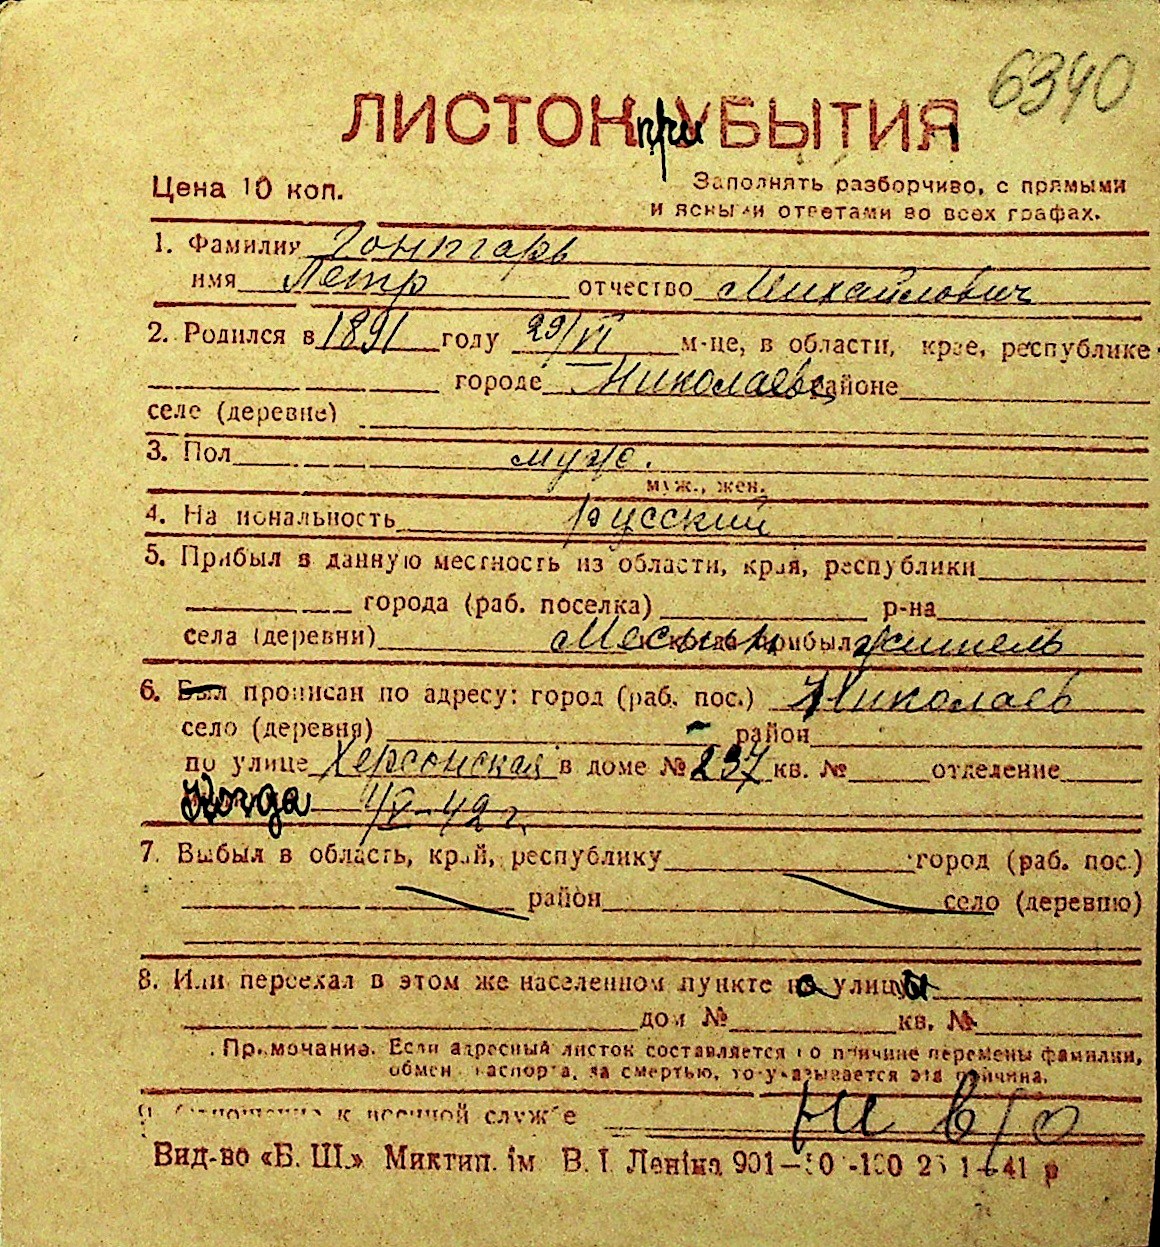 6340
ЛИСТОК приУБЫТИЯ
Цена 10 коп.
Заполнять разборчиво, с прямыми
и ясными ответами во всех графах.
1. Фамилия Гонтарь
имя Петр отчество Михайлович
2. Родился в 1891 году 29/VI м-це, в области, крае, республике
городе Николаеве районе
селе (деревне)
3. Пол муж.
муж., жен.
4. Национальность русский
5. Прибыл в данную местность из области, края, республики
города (раб. поселка) р-на
села (деревни) Местный житель и когда прибыл
6. Был прописан по адресу: город (раб. пос.) Николаев
село (деревня) - район
по улице Херсонская в доме № 237 кв. № отделение
Когда 1/V-42 г.
7. Выбыл в область, край, республику город (раб. пос.)
район село (деревню)
8. Или переехал в этом же населенном пункте с улицы
дом № кв. №
Примечание. Если адресный листок составляется по причине перемены фамилии,
обмен паспорта, за смертью, то указывается эта причина.
9. Отношение к военной службе н/в/о
Вид-во «Б. Ш.» Миктип. ім В. І. Леніна 901— -100 1-41 р